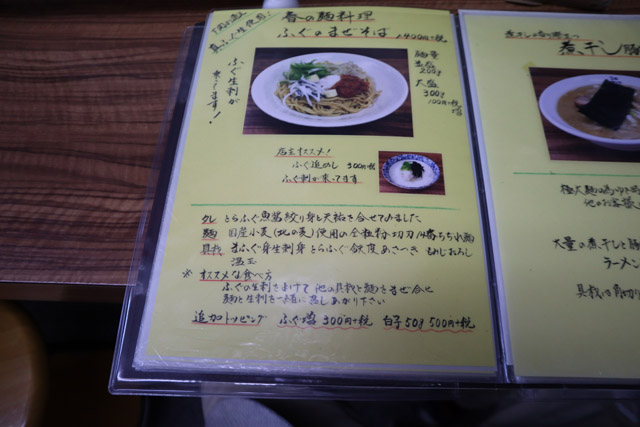 春の麺料理
ふぐのまぜそば 1,400円+税
真ふぐ生使用!
ふぐ生刺が
来てます!
麺量
並盛
200g
大盛
300g
100円+税
増
店主オススメ!
ふぐ追めし 300円+税
ふぐ刺が来ってます
タレ とらふぐ魚醤絞り身と天然を合せてみました
麺 国産小麦(北の麦)使用の全粒粉 切刃 14番ちぢれ細
具材 真ふぐ身生刺身 とらふぐ鉄皮 あさつき もみじおろし
温玉
※ オススメな食べ方
ふぐの生刺をよけて 他の具材と麺をまぜ合せ
麺と生刺を一緒に召しあがり下さい
追加トッピング ふぐ増 300円+税 白子50g 500円+税
煮干し豚
極太麺
他のお客様
大量の煮干しと豚
ラーメン
具材は